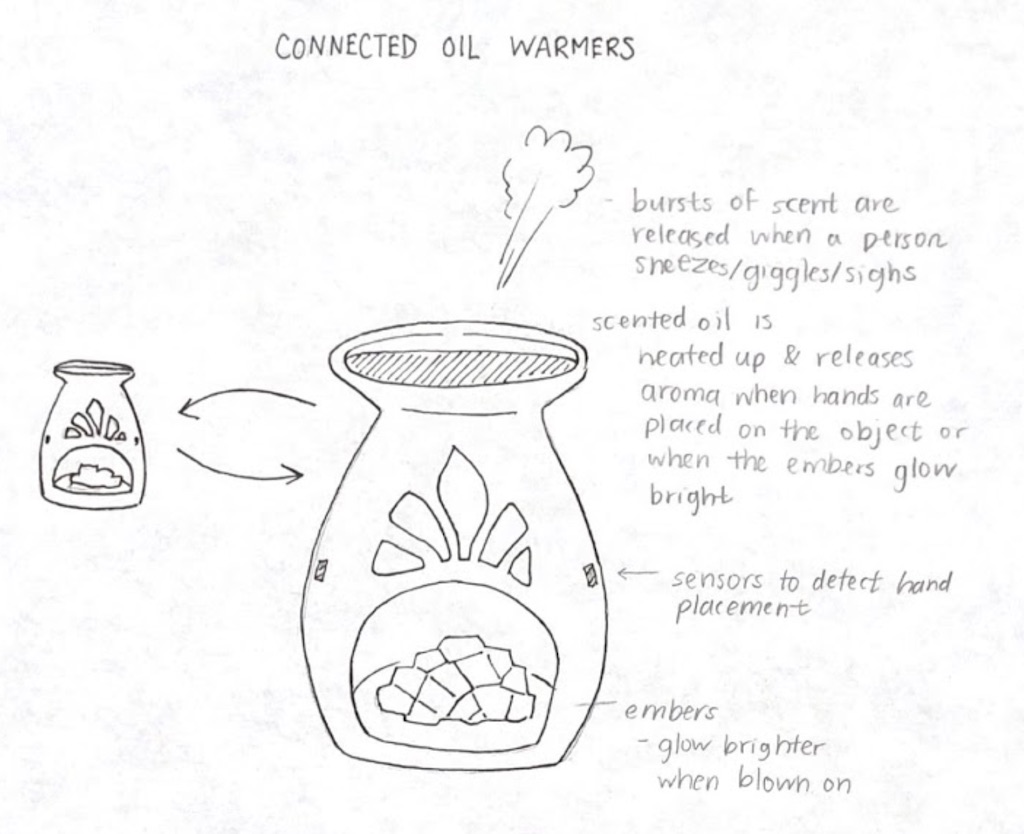 CONNECTED OIL WARMERS
- bursts of scent are
released when a person
sneezes/giggles/sighs
scented oil is
heated up & releases
aroma when hands are
placed on the object or
when the embers glow
bright
sensors to detect hand
placement
embers
- glow brighter
when blown on